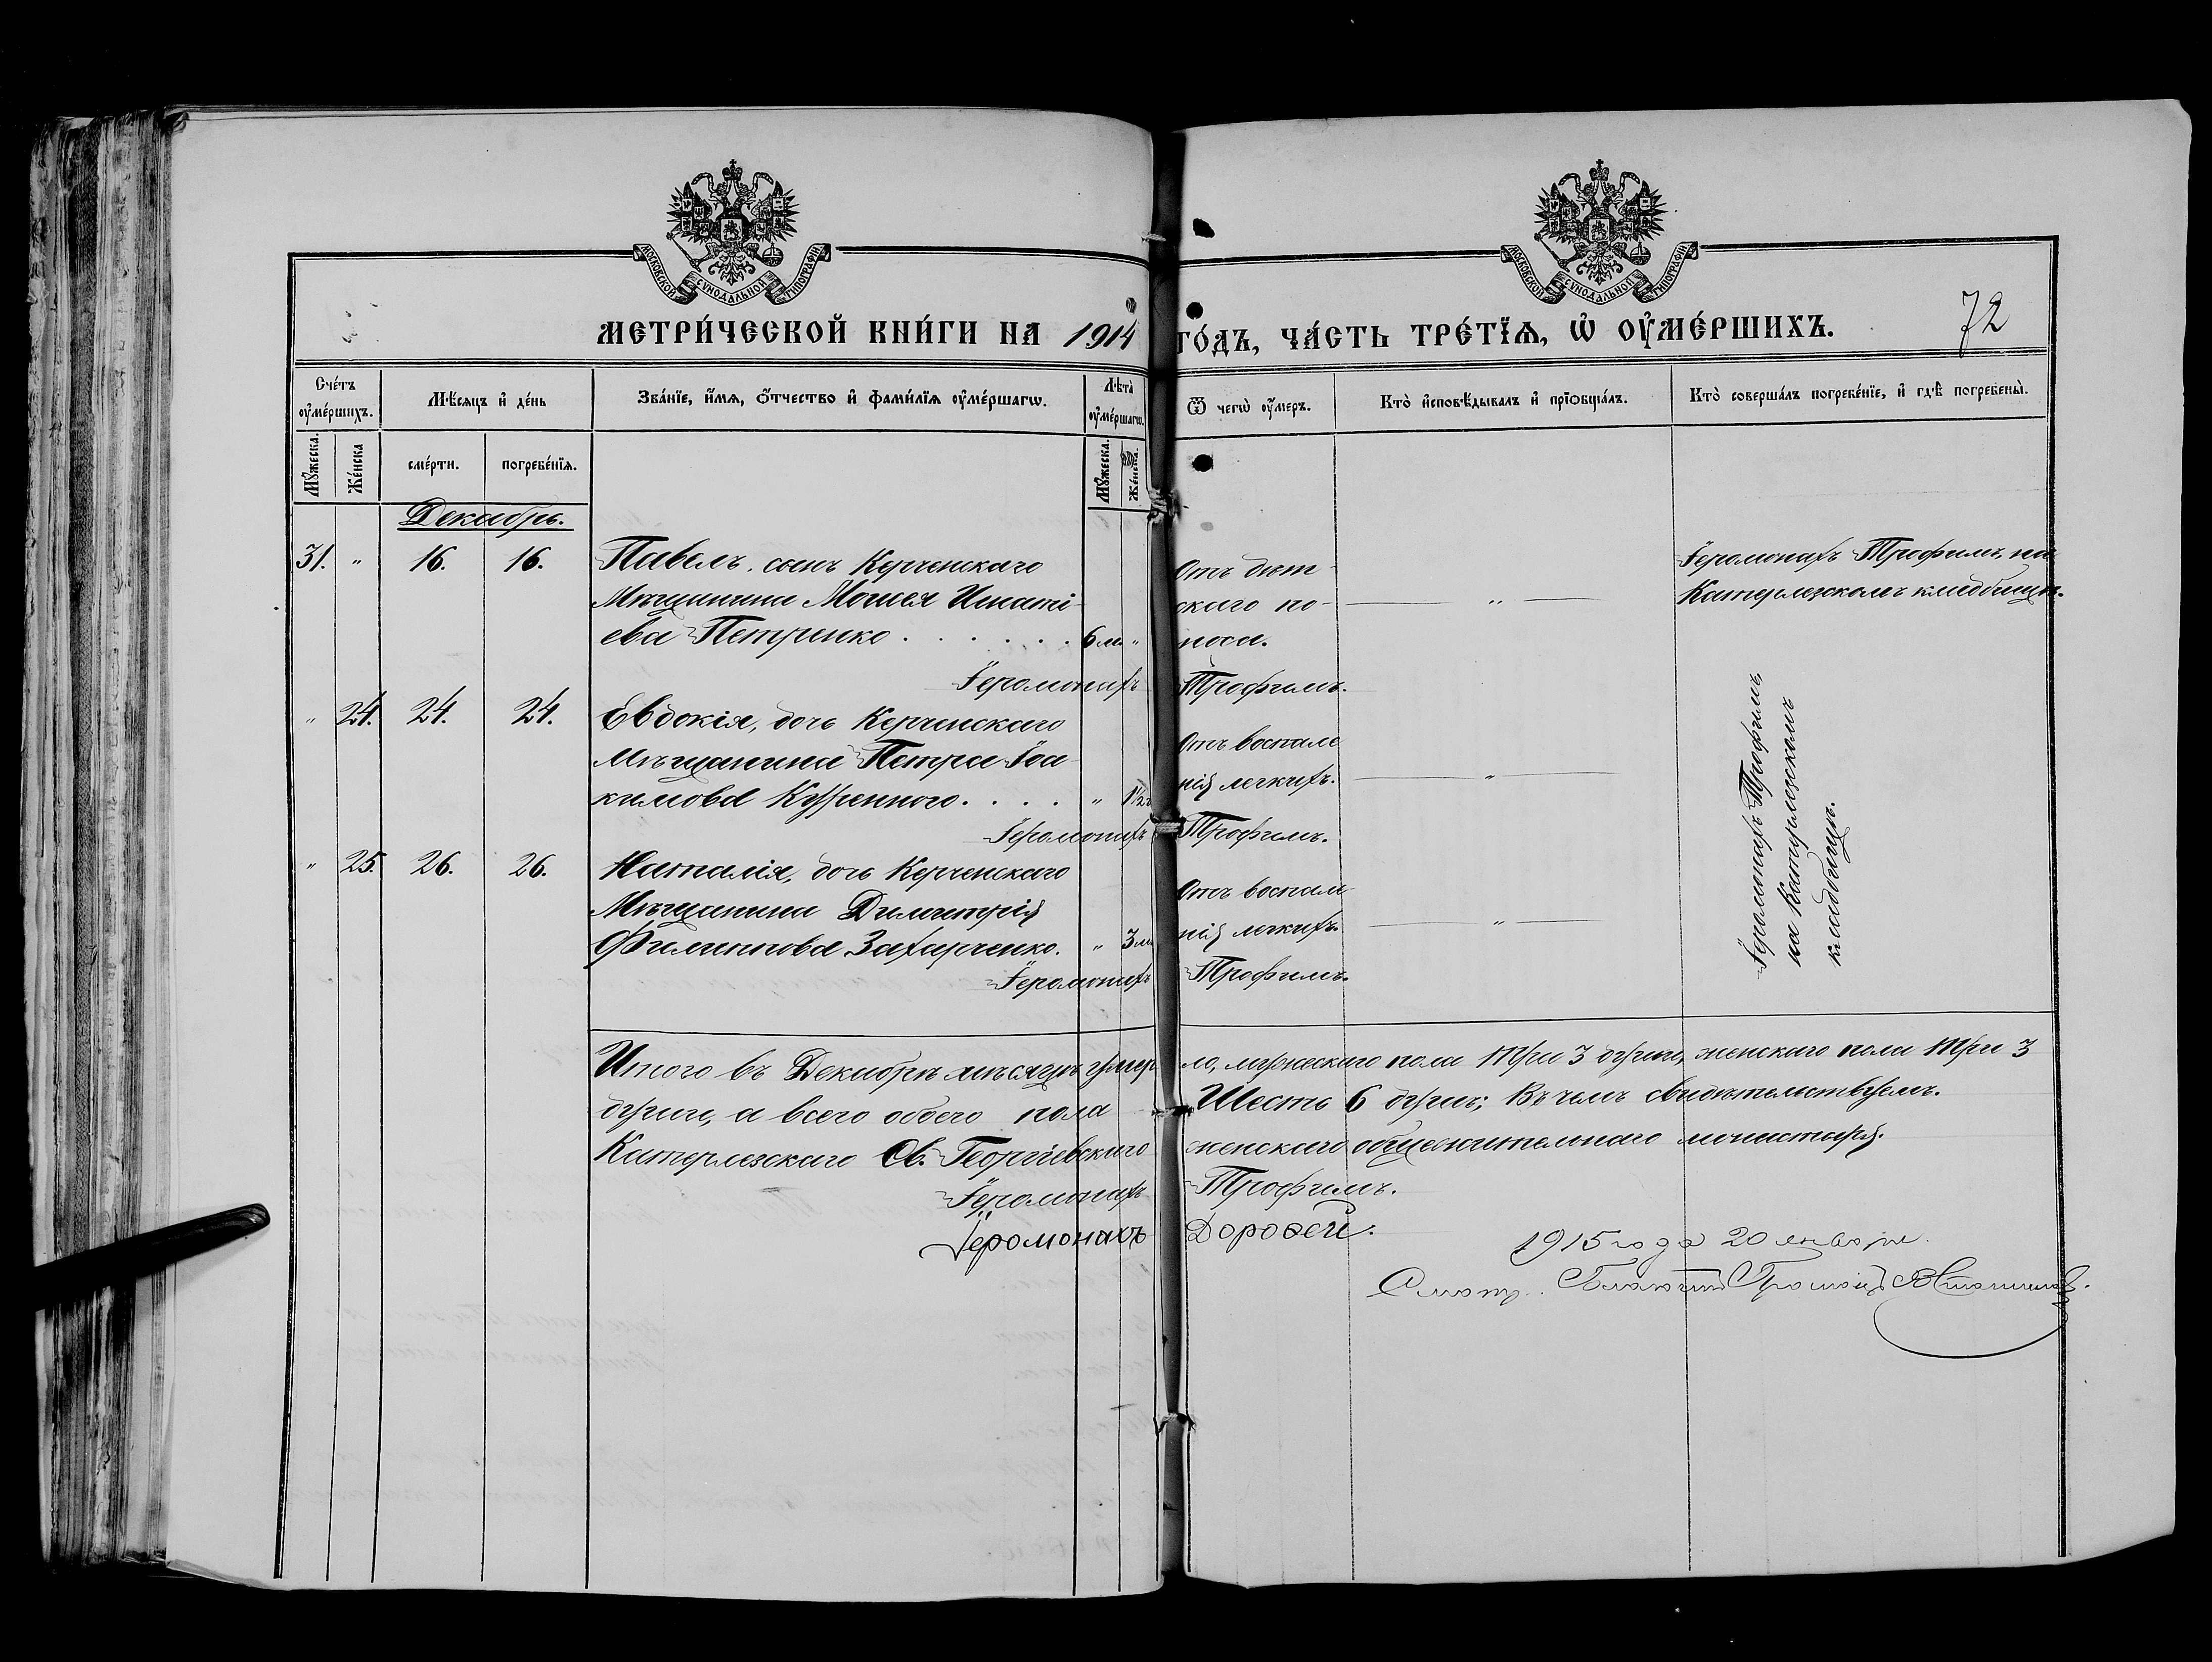 МОСКОВСКОЙ СѴНОДАЛЬНОЙ ТИПОГРАФІИ
МОСКОВСКОЙ СѴНОДАЛЬНОЙ ТИПОГРАФІИ
МЕТРИ́ЧЕСКОЙ КНИ́ГИ НА 1914 ГО́ДЪ, ЧА́СТЬ ТРЕ́ТЇѦ, Ѡ҆ ОУ҆МЕ́РШИХЪ.
72
Сче́тъ оу҆ме́ршихъ.
Мꙋ́жеска.
Же́нска
Мѣ́сяцъ и҆ де́нь
сме́рти.
погребе́нїѧ.
Зва́нїе, и҆́мѧ, ѻ҆́тчество и҆ фами́лїѧ оу҆ме́ршагѡ.
Лѣ́та оу҆ме́ршагѡ.
Мꙋ́жеска.
Же́нска.
Ѿ чегѡ̀ оу҆́меръ.
Кто̀ и҆сповѣ́дывалъ и҆ прїѡбща́лъ.
Кто̀ соверша́лъ погребе́нїе, и҆ гдѣ̀ погребены̀.
Декабрь.
31. " 16. 16.
Павелъ, сынъ Керченскаго
Мѣщанина Моисея Игнаті-
ева Петренко . . . . . . 6 м. "
Отъ дѣт-
скаго по-
носа.
"
Іеромонахъ Трофимъ, на
Катерлезскомъ кладбищѣ.
Іеромонахъ Трофимъ.
" 24. 24. 24.
Евдокія, дочь Керченскаго
Мѣщанина Петра Іоа-
кимова Курренного. . . . " 1½ г
Отъ воспале
нія легкихъ.
"
Іеромонахъ Трофимъ.
" 25. 26. 26.
Наталія, дочь Керченскаго
Мѣщанина Димитрія
Филиппова Захарченко. " 3 м
Отъ воспале
нія легкихъ.
"
Іеромонахъ Трофимъ.
Іеромонахъ Трофимъ
на Катерлезскомъ
кладбищѣ.
Итого въ Декабрѣ мѣсяцѣ умерло, мужескаго пола три 3 души, женскаго пола три 3
души, а всего обоего пола Шесть 6 душъ; Въ чемъ свидѣтельствуемъ.
Катерлезскаго Св. Георгіевскаго женскаго общежительнаго монастыря.
Іеромонахъ Трофимъ.
Іеромонахъ Дороѳей.
1915 года 20 января.
Смотр. Благочин